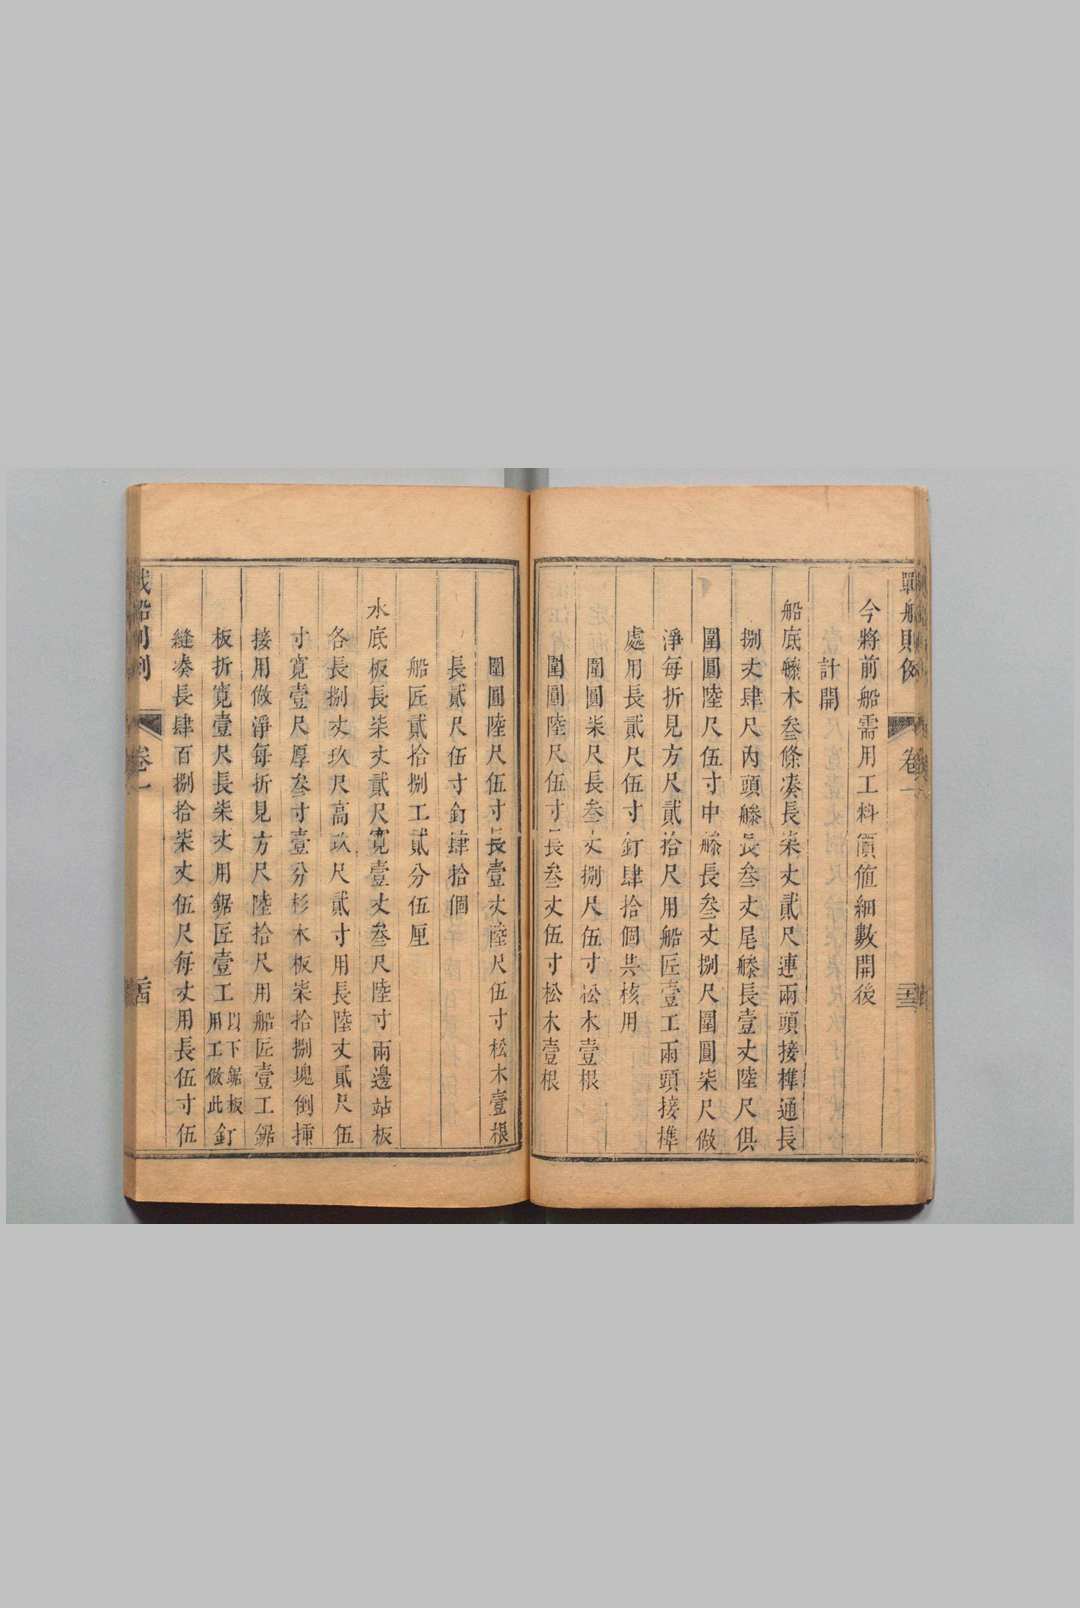 戰船則例
卷一
二十三
今將前船需用工料價值細數開後
計開
船底艨木叁條凑長柒丈貳尺連兩頭接榫通長
捌丈肆尺內頭艨長叁丈尾艨長壹丈陸尺俱
圍圓陸尺伍寸中艨長叁丈捌尺圍圓柒尺做
淨每折見方尺貳拾尺用船匠壹工兩頭接榫
處用長貳尺伍寸釘肆拾個共核用
圍圓柒尺長叁丈捌尺伍寸松木壹根
圍圓陸尺伍寸長叁丈伍寸松木壹根
圍圓陸尺伍寸長壹丈陸尺伍寸松木壹根
長貳尺伍寸釘肆拾個
船匠貳拾捌工貳分伍厘
水底板長柒丈貳尺寬壹丈叁尺陸寸兩邊站板
各長捌丈玖尺高玖尺貳寸用長陸丈貳尺伍
寸寬壹尺厚叁寸壹分杉木板柒拾捌塊倒
接用做淨每折見方尺陸拾尺用船匠壹工鋸
板折寬壹尺長柒丈用鋸匠壹工以下鋸板用工倣此釘
縫凑長肆百捌拾柒丈伍尺每丈用長伍寸伍
卷一